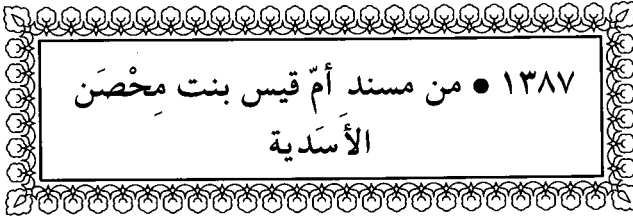 ١٣٨٧ ● من مسند أمّ قيس بنت مِحْصَن
الأَسَدية